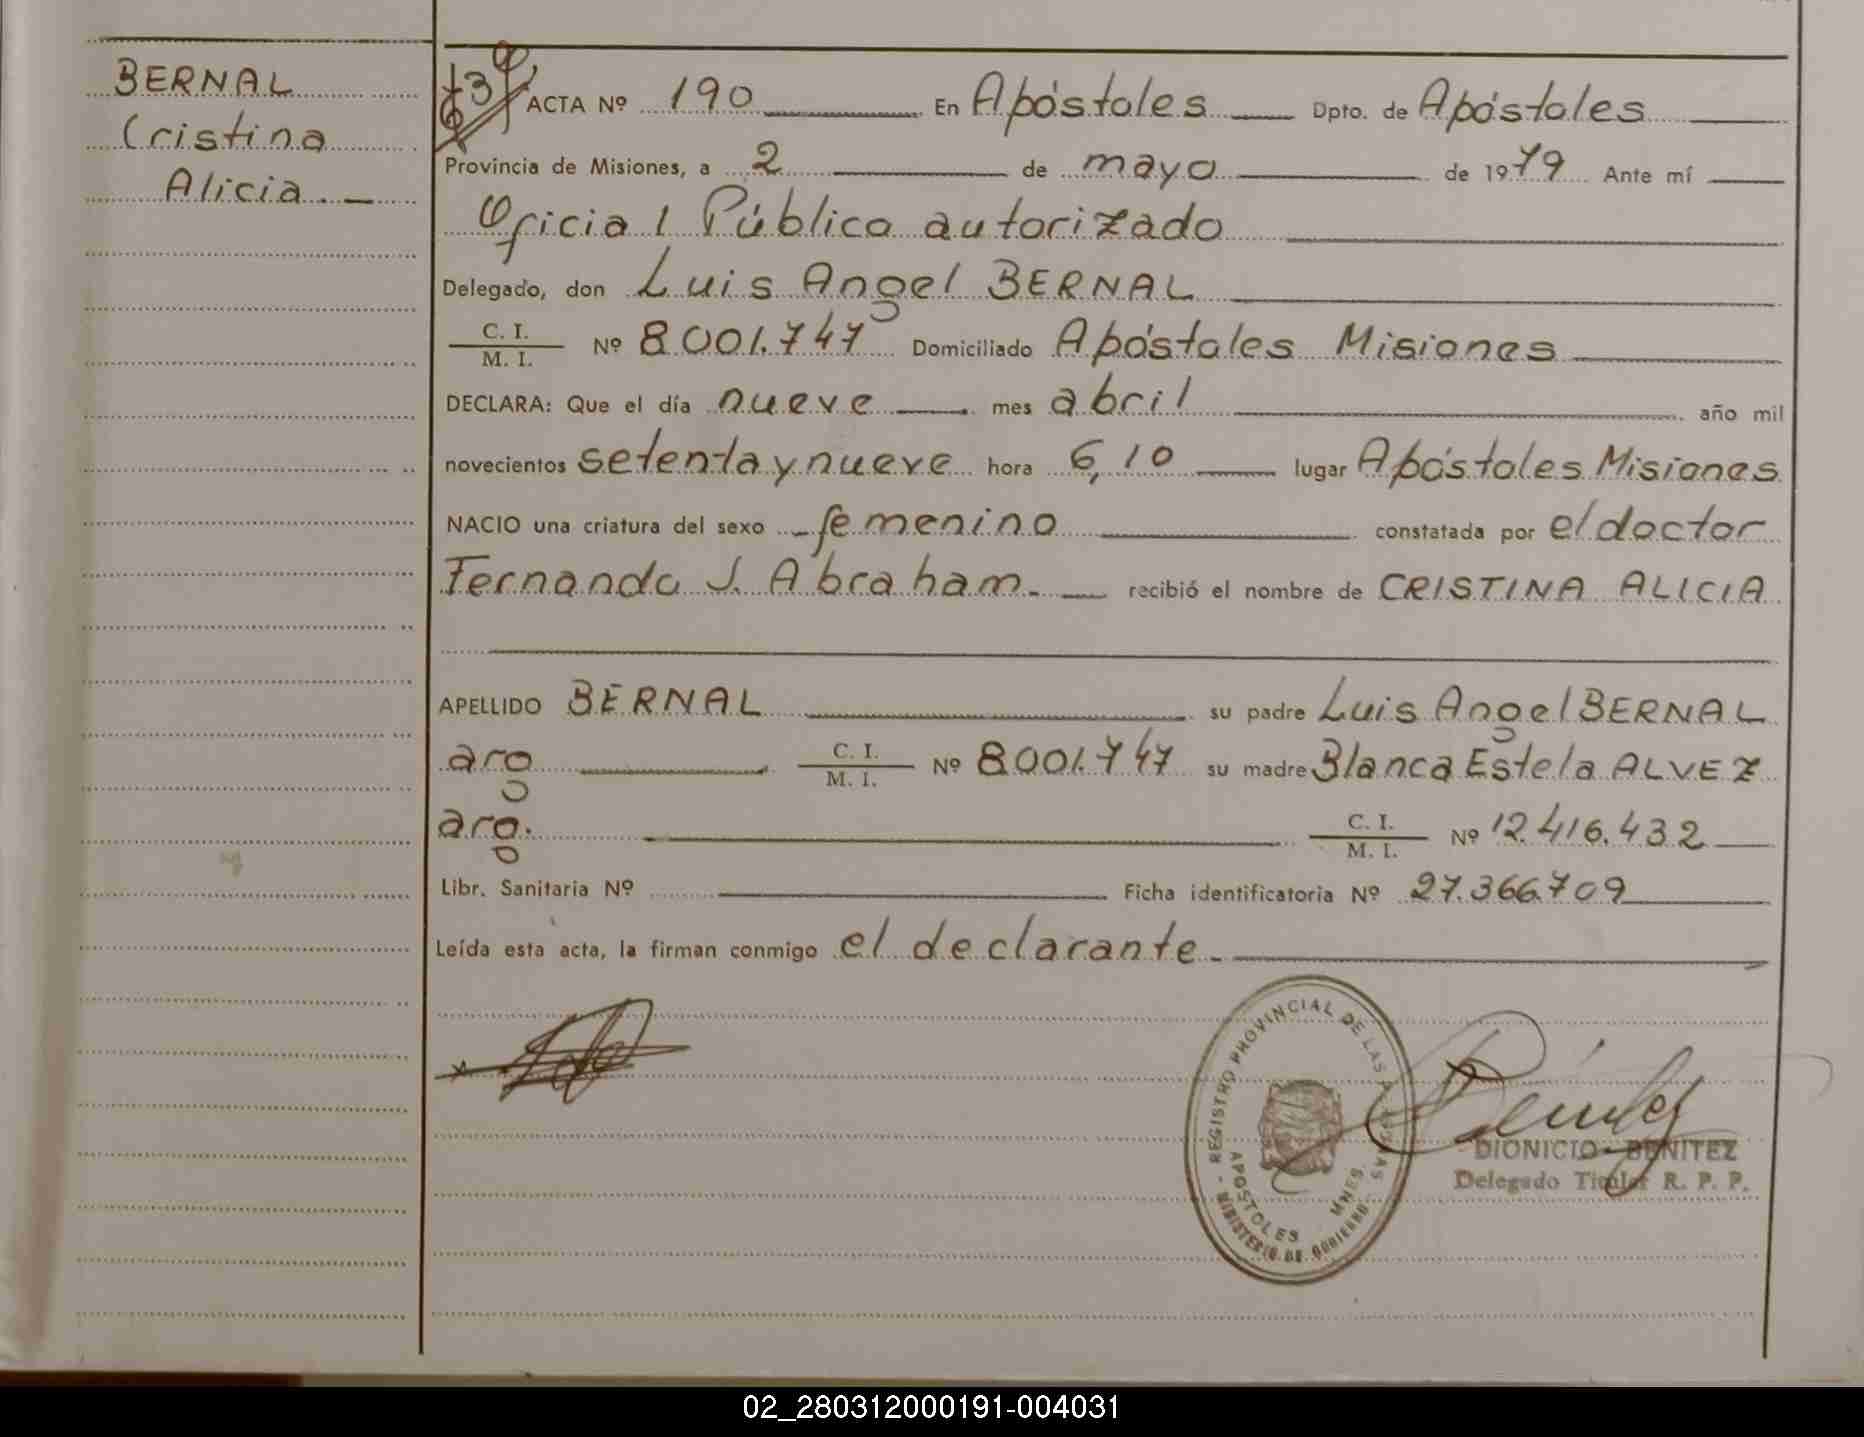 BERNAL
Cristina
Alicia. —
ACTA Nº 190 En Apóstoles Dpto. de Apóstoles
Provincia de Misiones, a 2 de mayo de 1979 Ante mí
Oficial Público autorizado
Delegado, don Luis Angel BERNAL
C. I.
M. I. Nº 8.001.747 Domiciliado Apóstoles Misiones
DECLARA: Que el día nueve mes abril año mil
novecientos setenta y nueve hora 6,10 lugar Apóstoles Misiones
NACIO una criatura del sexo femenino constatada por el doctor
Fernando J. Abraham. recibió el nombre de CRISTINA ALICIA
APELLIDO BERNAL su padre Luis Angel BERNAL
arg C. I.
M. I. Nº 8.001.747 su madre Blanca Estela ALVEZ
arg. C. I.
M. I. Nº 12.416.432
Libr. Sanitaria Nº Ficha identificatoria Nº 27.366.709
Leída esta acta, la firman conmigo el declarante.
REGISTRO PROVINCIAL DE LAS PERSONAS
APOSTOLES MNES.
- MINISTERIO DE GOBIERNO -
DIONICIO BENITEZ
Delegado Titular R. P. P.
02_280312000191-004031